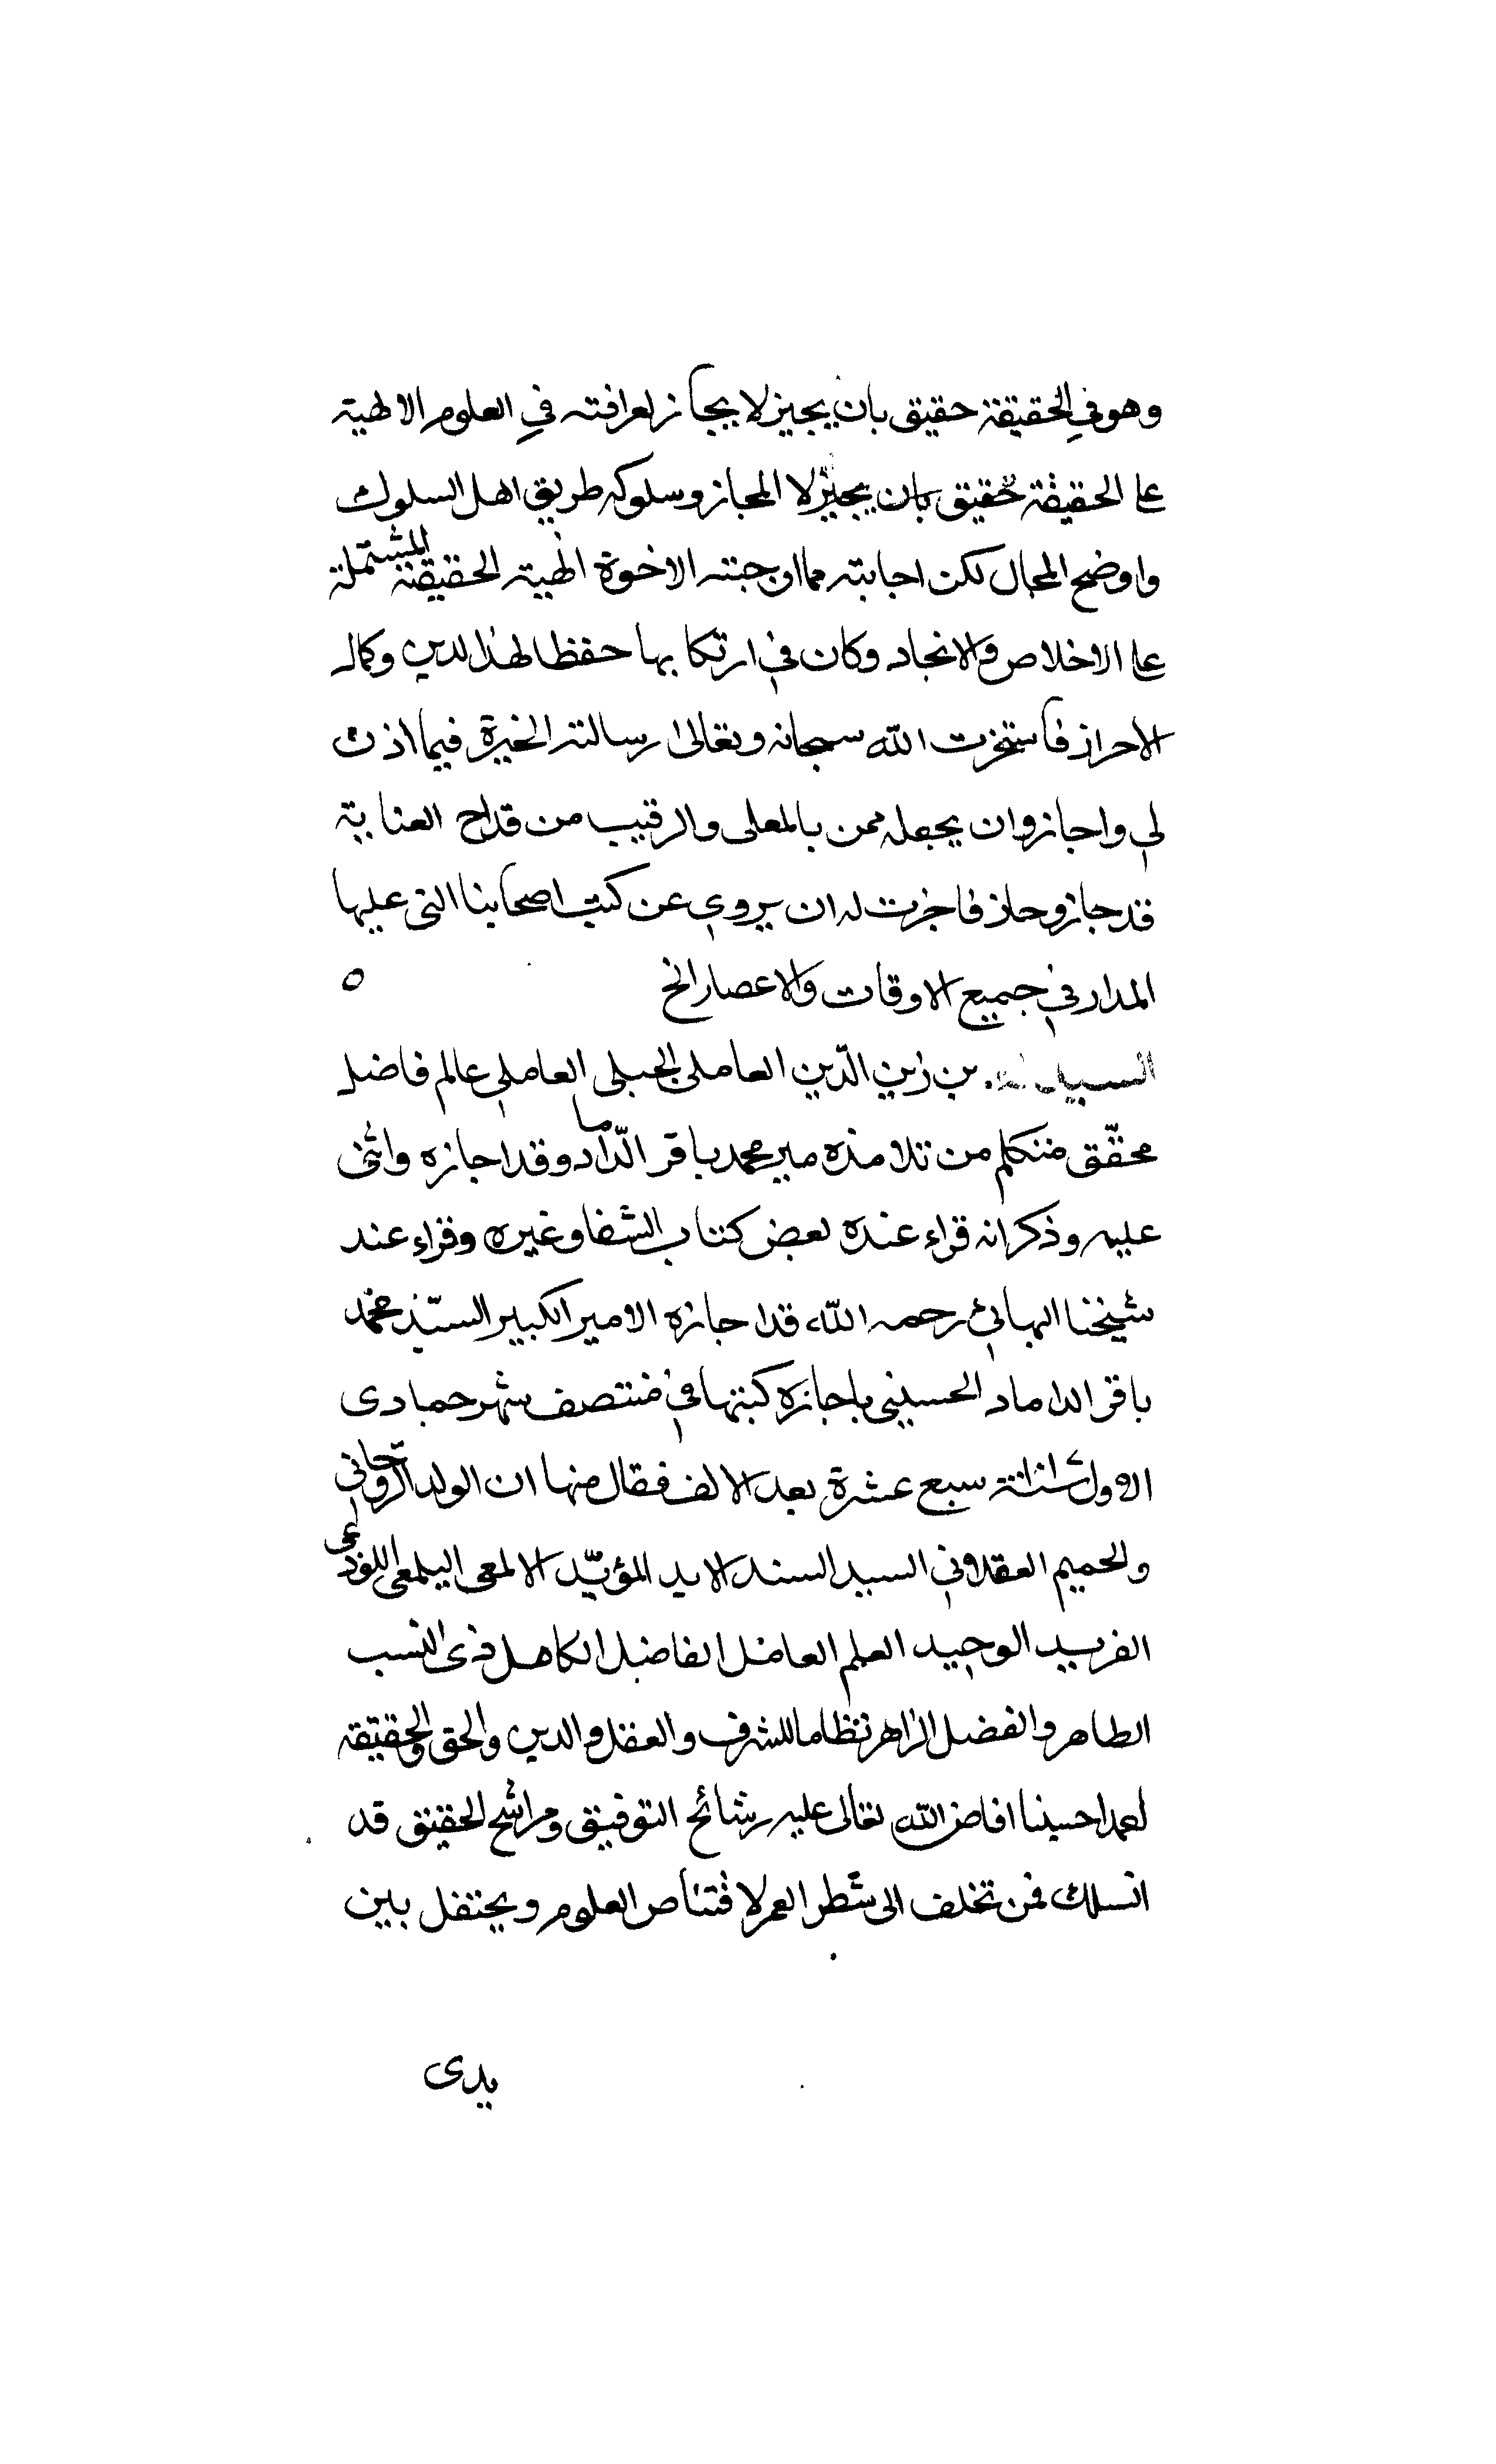 وهو في الحقيقة حقيق بان يجيز لا يجاز لعرافته في العلوم الالهية
على الحقيقة حقيق بان يجيز لا المجاز وسلوكه طريق اهل السلوك
واوضح المجال لكن اجابته مما اوجبته الاخوة الهية الحقيقة المشتملة
على الاخلاص والاتحاد وكان في ارتكابها حفظا لهذا لدين وكماله
الاحراز فاستخرت الله سبحانه وتعالى رسالته الخيرة فيما اذن
لي واجاز وان يجعله ممن بالمعلى والرقيب من قداح العناية
قد جاز وحاز فاجزت له ان يروي عن كتب اصحابنا التي عليها
المدار في جميع الاوقات والاعصار الخ ه
السيد بن زين الدّين العاملي الجبلي العاملي عالم فاضل
محقّق متكلم من تلامذه مير محمد باقر الدّاماد وقد اجازه واثنى
عليه وذكر انه قراء عنده بعض كتاب الشفا وغيره وقراء عند
شيخنا البهائي رحمه الله، قد اجازه الامير الكبير السيّد محمد
باقر الداماد الحسيني باجازه كتبتها في منتصف شهر جمادى
الاول سنة سبع عشرة بعد الالف فقال منها ان الولد الرّوحاني
والحميم العقلاني السيد السند الايد المؤيّد الالمعي اليلمعي اللوذعي
الفريد الوحيد العلم العامل الفاضل الكامل ذى النسب
الطاهر والفضل الزاهر نظاما للشرف والعقل والدين والحق والحقيقه
احمد احسينا افاض الله تعالى عليه رشائح التوفيق ومراشح الحقيق قد
انسلك فمن تخلف الى شطر العمر لاقتناص العلوم ويحتفل بين
يدى